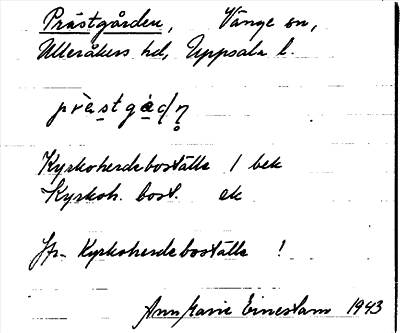 Prästgården, Vänge sn,
Ulleråkers hd, Uppsala l.
prästgàdṇ
Kyrkoherdeboställe 1 bek
Kyrkoh. bost. ek
Jfr Kyrkoherdeboställe !
Ann Marie Einerstam 1943